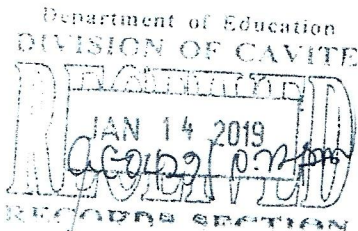 Department of Education
DIVISION OF CAVITE
RECEIVED
JAN 14 2019
RECORDS SECTION